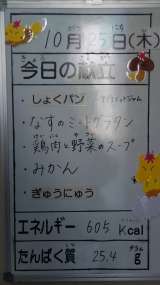 10月25日(木)
今日の献立
・しょくパン
・なすのミートグラタン
・鶏肉と野菜のスープ
・みかん
・ぎゅうにゅう
エネルギー 605 Kcal
たんぱく質 25.4 g